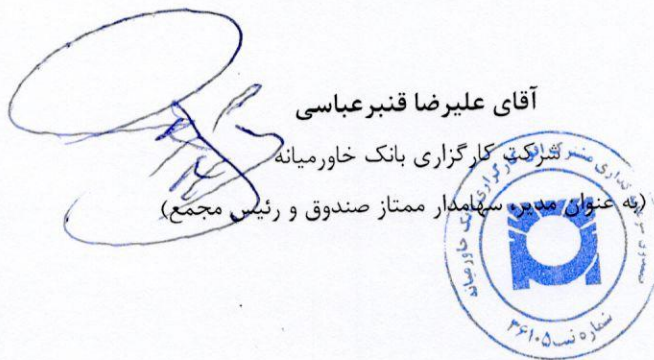 آقای علیرضا قنبرعباسی
شرکت کارگزاری بانک خاورمیانه
(به عنوان مدیر، سهامدار ممتاز صندوق و رئیس مجمع)
صندوق سرمایه گذاری مشترک افق کارگزاری بانک خاورمیانه
شماره ثبت ۳۶۱۰۵